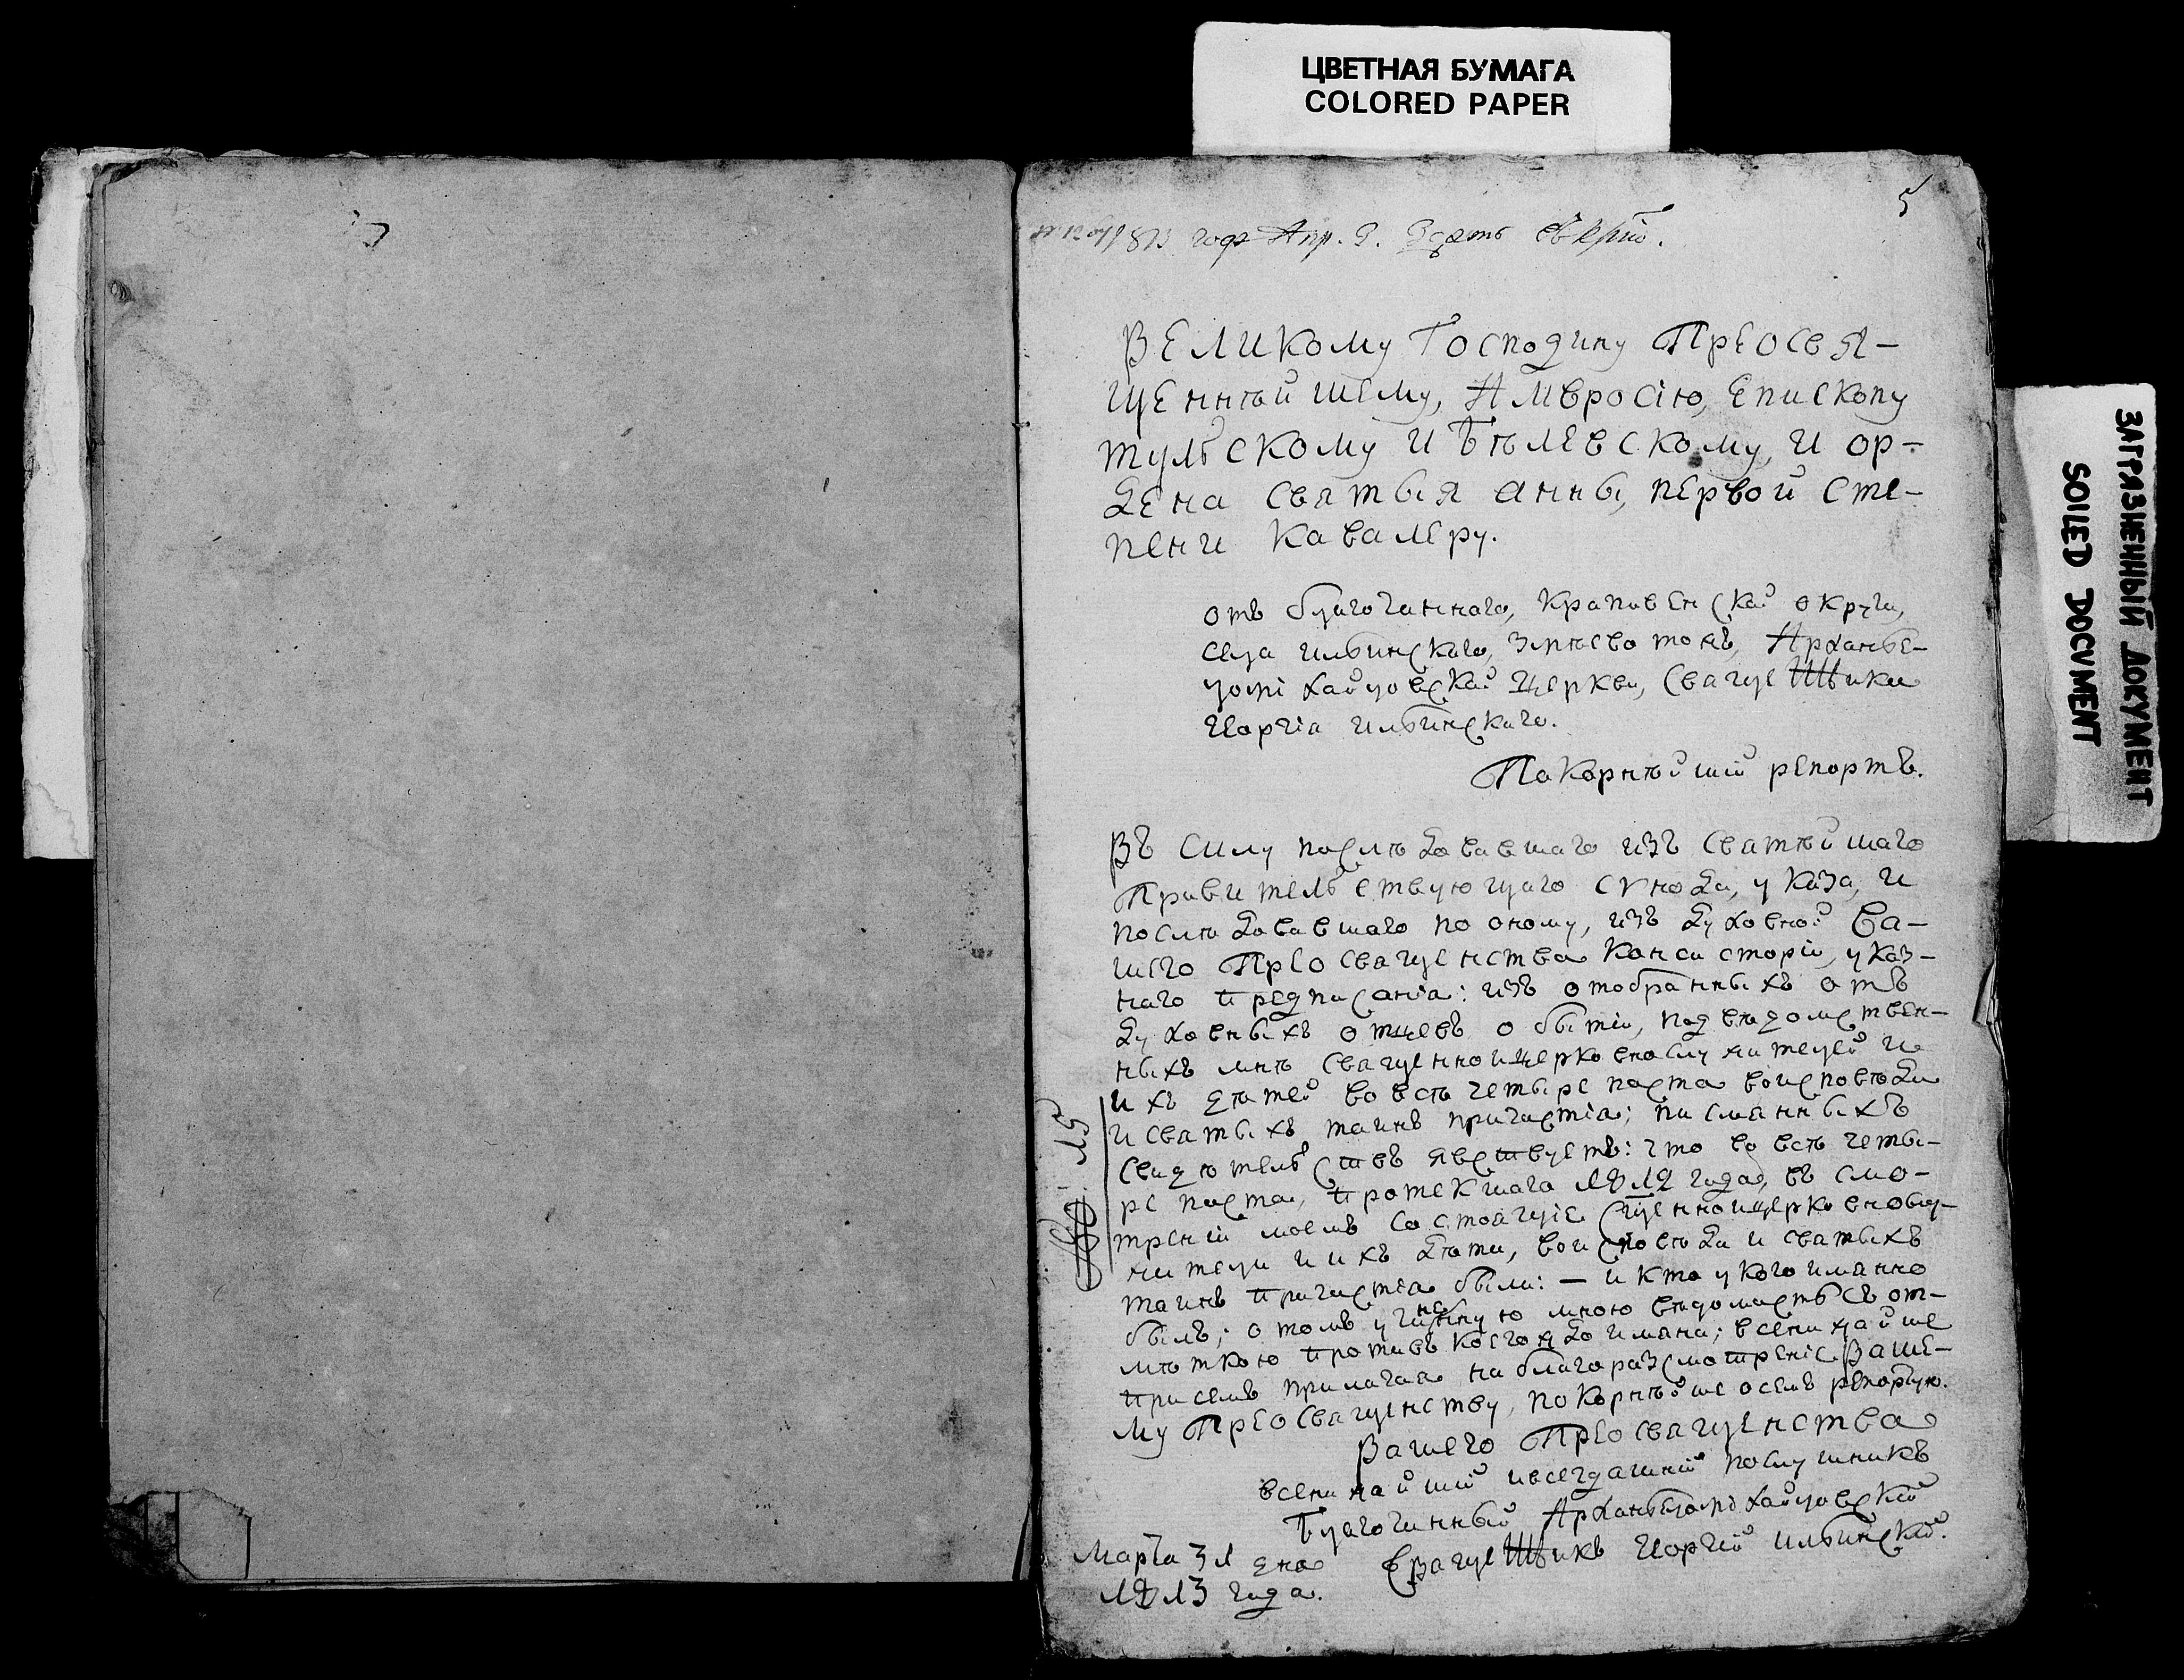 ЦВЕТНАЯ БУМАГА
COLORED PAPER
ЗАГРЯЗНЕННЫЙ ДОКУМЕНТ
SOILED DOCUMENT
5
1813 года Апр.
Великому Господину Преосвя-
щеннѣйшему, Амвросію, Епископу
тульскому и Бѣлевскому, и ор-
дена святыя анны, первой сте-
пени Кавалеру.
отъ благочиннаго, Крапивенской округи,
села ильинскаго, тожъ, Арханге-
ломіхайловской Церкви, Священника
Георгіа ильинскаго.
Покорнѣйшій репортъ.
Въ силу послѣдовавшаго изъ Святѣйшаго
Правительствующаго сѵнода, указа, и
послѣдовавшаго по оному, изъ духовной Ва-
шего Преосвященства Консисторіи, указ-
наго предписаніа: изъ отобранныхъ отъ
духовныхъ отцевъ о бытіи, подвѣдомствен-
ныхъ мнѣ священноицерковнослужителей и
ихъ дѣтей во всѣ четыре поста воисповѣди
и святыхъ таинъ причастіа; писманныхъ
свидѣтельствъ явствуетъ: что во всѣ четы-
ре поста, протекшаго 1812 года, въ смо-
треніи моемъ состоящіе сщенноицерковнослу-
жители и ихъ дѣти, воисповѣди и святыхъ
таинъ причастіа были: — и кто у кого иманно
былъ; о томъ учиненную мною вѣдомость съ от-
мѣткою противъ коегождо имани; всенижайше
присемъ прилагаа на благоразсмотреніе Ваше-
му Преосвященству, покорнѣйше осемъ репортую.
Вашего Преосвященства
всенижайшій ивсегдашній послушникъ
Благочинный Архангеломіхайловской
Священникъ Георгій ильинской.
Марта 31 дня
1813 года.
№ 15